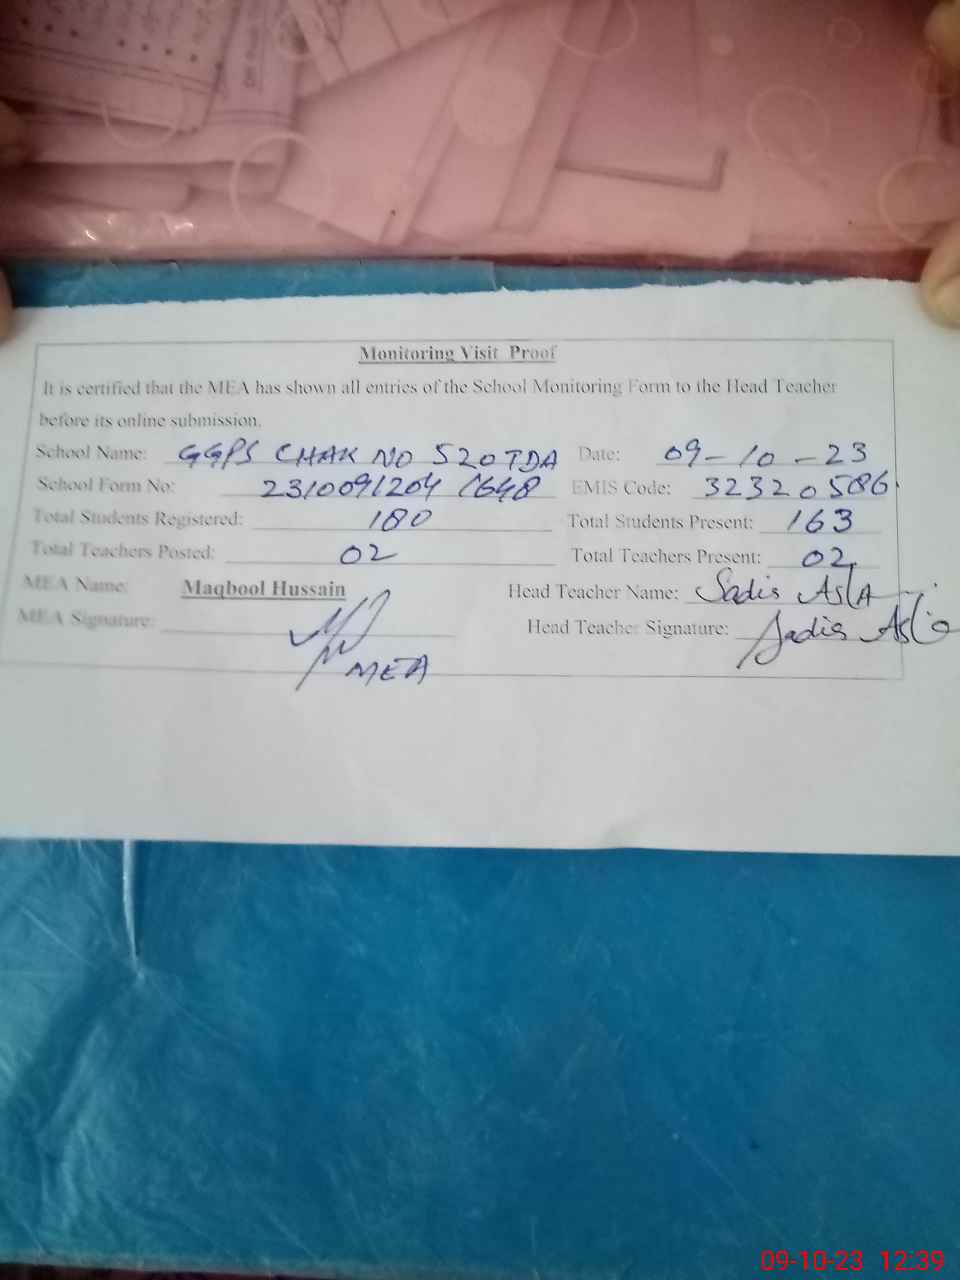 Monitoring Visit Proof
It is certified that the MEA has shown all entries of the School Monitoring Form to the Head Teacher
before its online submission.
School Name: GGPS CHAK NO 520TDA Date: 09-10-23
School Form No: 2310091204 1648 EMIS Code: 32320586
Total Students Registered: 180 Total Students Present: 163
Total Teachers Posted: 02 Total Teachers Present: 02
MEA Name: Maqbool Hussain Head Teacher Name: Sadis
MEA Signature: Head Teacher Signature: Sadis
MEA
09-10-23 12:39